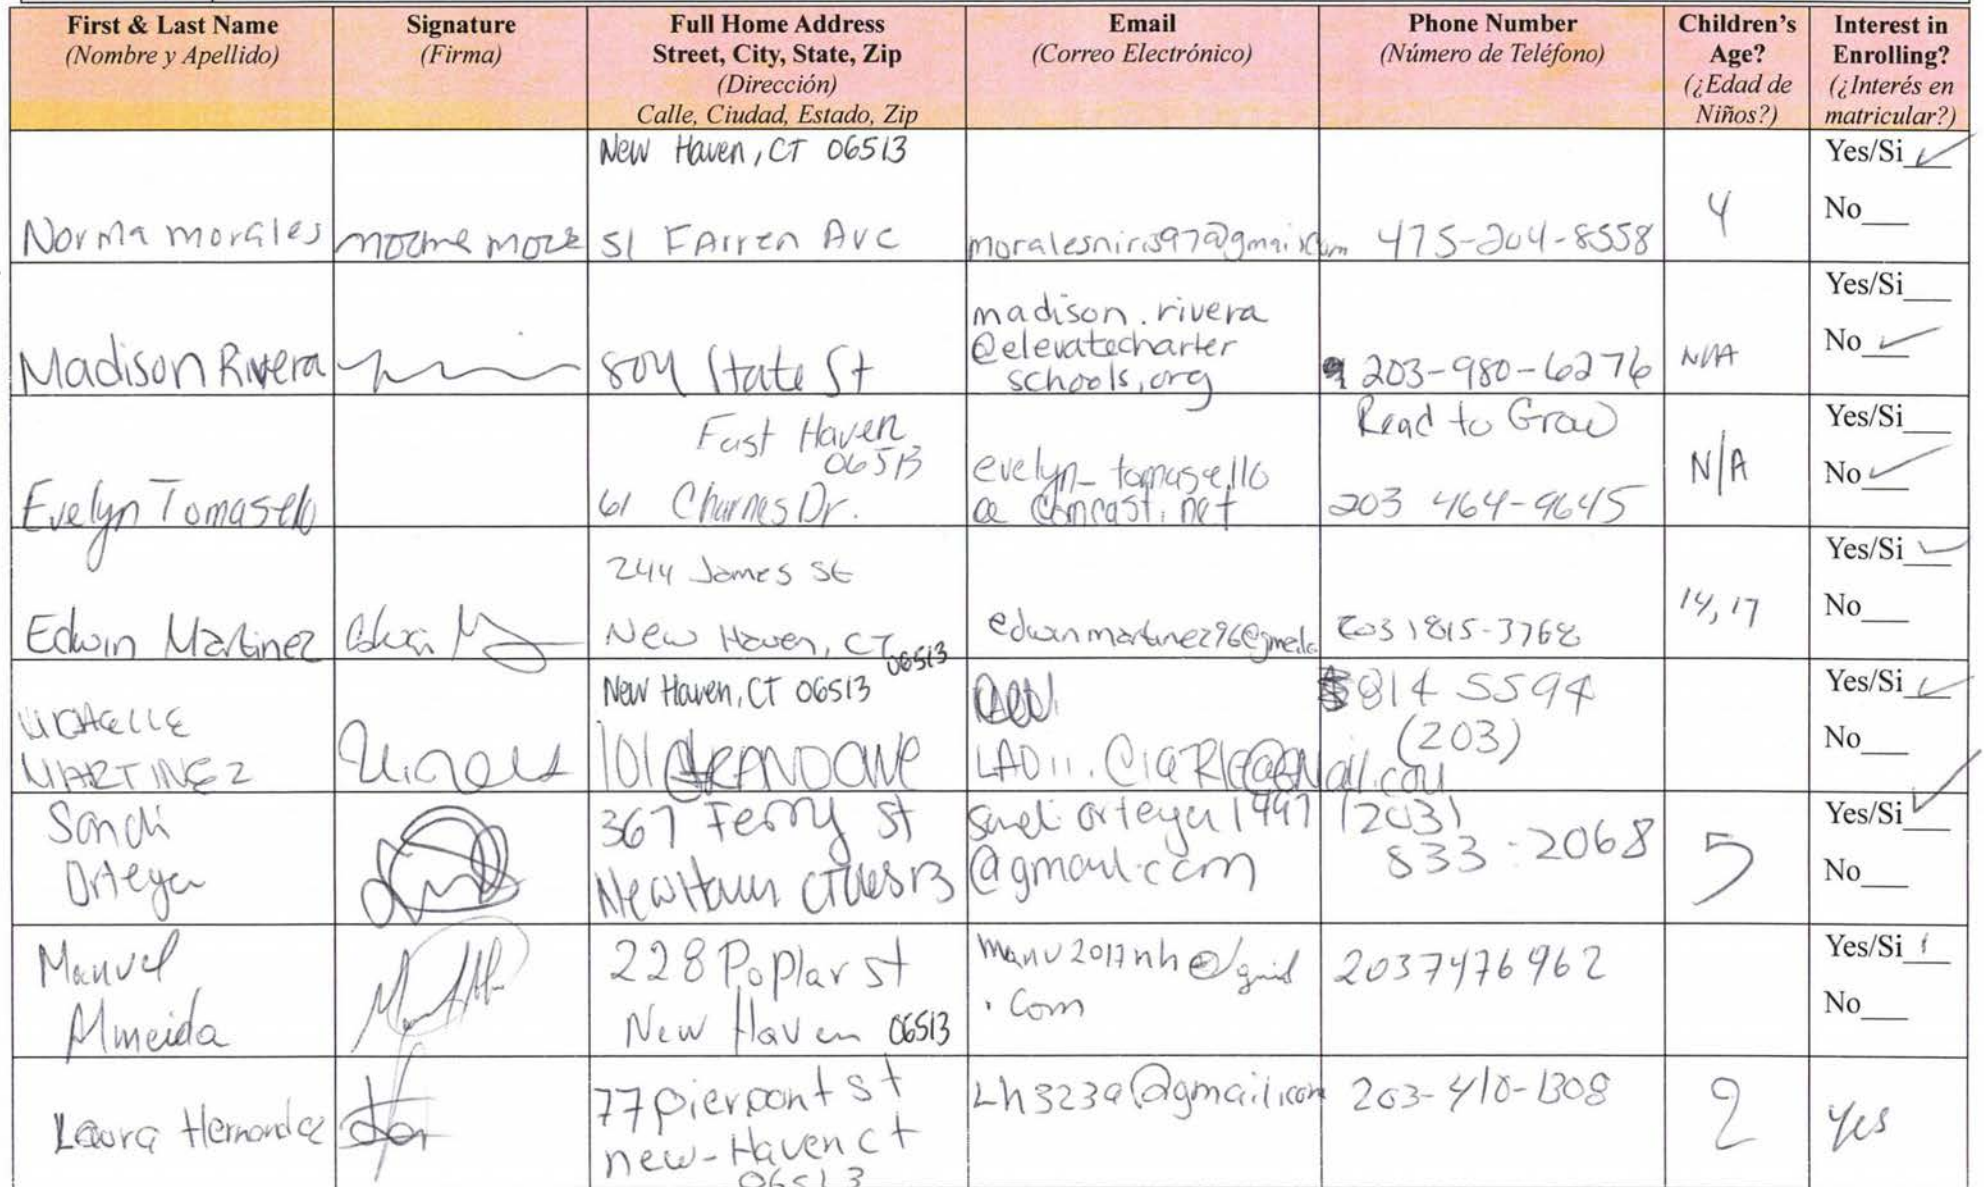 First & Last Name
(Nombre y Apellido)
Signature
(Firma)
Full Home Address
Street, City, State, Zip
(Dirección)
Calle, Ciudad, Estado, Zip
Email
(Correo Electrónico)
Phone Number
(Número de Teléfono)
Children's
Age?
(¿Edad de
Niños?)
Interest in
Enrolling?
(¿Interés en
matricular?)
Norma morales
New Haven, CT 06513
51 FArren Ave
475-204-8558
4
Yes/Si ✓
No
Madison Rivera
804 State St
madison.rivera
@elevatecharter
schools.org
203-980-6276
N/A
Yes/Si
No ✓
Evelyn Tomasello
East Haven
06513
61 Charnes Dr.
evelyn_tomasello
@comcast.net
Read to Grow
203 464-9645
N/A
Yes/Si
No ✓
Edwin Martinez
244 James St
New Haven, CT
06513
edwinmartinez96@gmail.c
203 1815-3768
14, 17
Yes/Si ✓
No
MICHELLE
MARTINEZ
New Haven, CT 06513
101 GRAND AVE
814 5594
(203)
Yes/Si ✓
No
Sandi
Ortega
367 Ferry St
New Haven CT 06513
Sandi ortega 1997
@gmail.com
(203)
833-2068
5
Yes/Si ✓
No
Manuel
Almeida
228 Poplar st
New Haven 06513
manu2017nh@gmail
.com
2037476962
Yes/Si
No
Laura Hernandez
77 pierpont st
new-Haven ct
06513
Lh323a@gmail.com
203-410-1308
2
yes